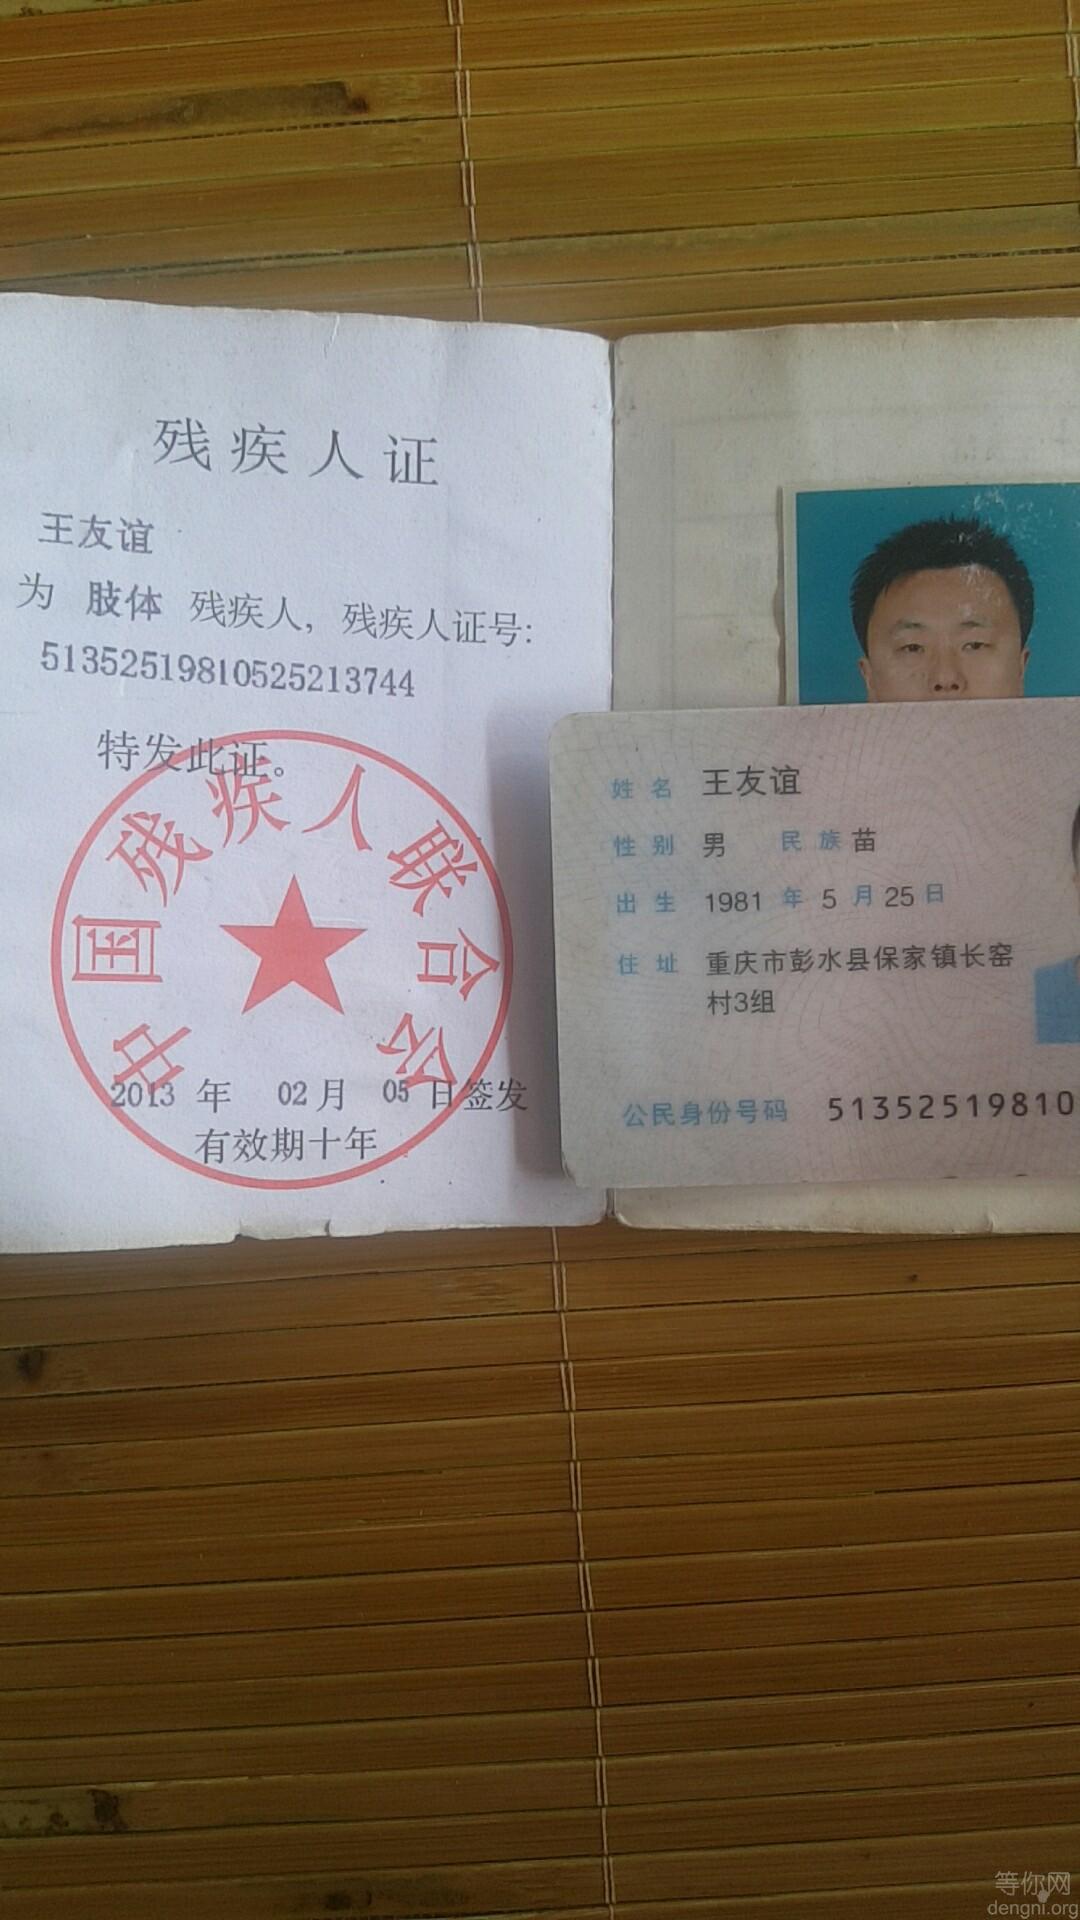 残疾人证
王友谊
为 肢体 残疾人，残疾人证号：
51352519810525213744
特发此证。
中国残疾人联合会
2013 年 02 月 05 日签发
有效期十年
姓名 王友谊
性别 男 民族 苗
出生 1981 年 5 月 25 日
住址 重庆市彭水县保家镇长窑
村3组
公民身份号码 51352519810
等你网
dengni.org